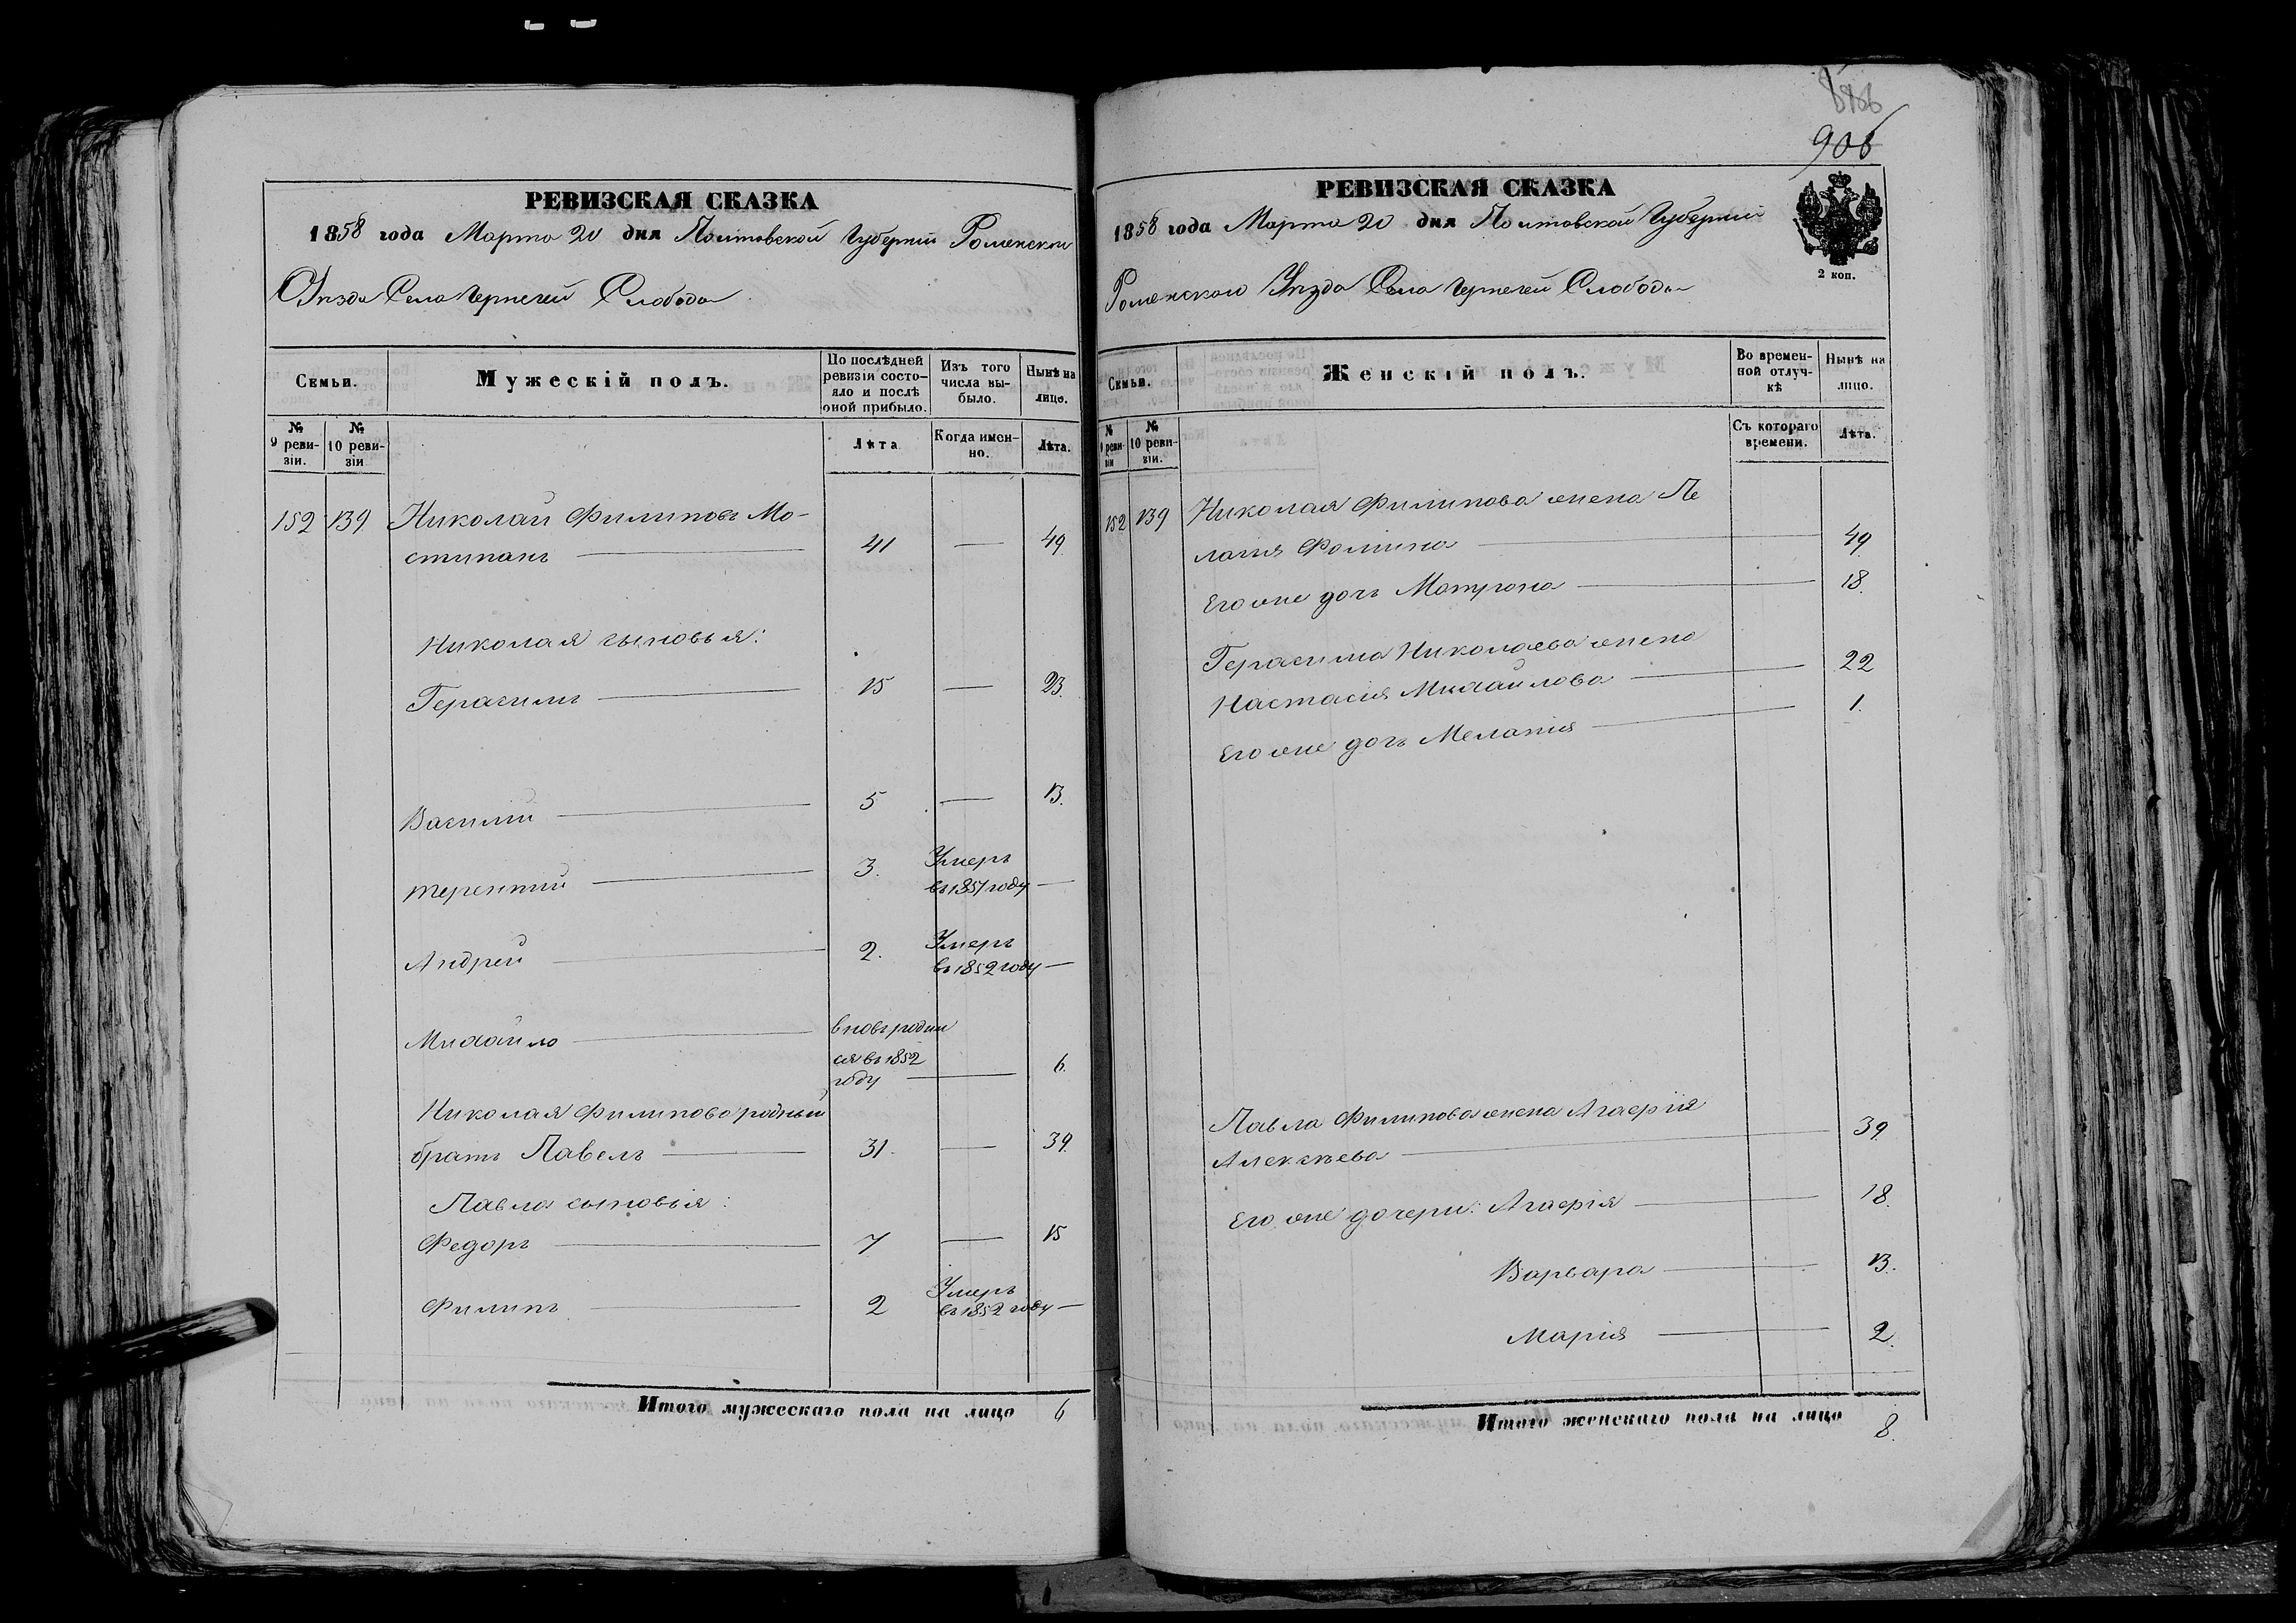 906
РЕВИЗСКАЯ СКАЗКА
1858 года Марта 20 дня Полтовской Губерніи Роменскаго
Уѣзда Села Чернечей Слободы
Семьи.
Мужескій полъ.
По послѣдней
ревизіи состо-
яло и послѣ
оной прибыло.
Изъ того
числа вы-
было.
Нынѣ на
лицо.
№
9 реви-
зіи.
№
10 реви-
зіи
Лѣта
Когда имен-
но.
Лѣта.
152 139 Николай Филиповъ Мо-
стипанъ 41 — 49
Николая сыновья:
Герасимъ 15 — 23.
Василій 5 — 13.
Терентий 3. Умеръ
въ 1857 году —
Андрей 2. Умеръ
въ 1852 году —
Михайло вновь родил
ся въ 1852
году — 6.
Николая Филипова родный
братъ Павелъ 31. — 39.
Павла сыновья:
Федоръ 7 — 15
Филипъ 2 Умеръ
въ 1852 году —
Итого мужескаго пола на лицо 6
РЕВИЗСКАЯ СКАЗКА
1858 года Марта 20 дня Полтовской Губерніи
2 коп.
Роменскаго Уѣзда Села Чернечей Слободы
Семьи.
Женскій полъ.
Во времен-
ной отлуч-
кѣ
Нынѣ на
лицо.
№
9 реви-
зіи
№
10 реви-
зіи.
Съ котораго
времени.
Лѣта.
152 139 Николая Филипова жена Пе
лагия Фомина 49
Его же дочь Матрона 18.
Герасима Николаева жена
Настасия Михайлова 22
Его же дочь Мелания 1.
Павла Филипова жена Агафія
Алексѣева 39
Его же дочери: Агафія 18.
Варвара 13.
Марія 2.
Итого женскаго пола на лицо 8.